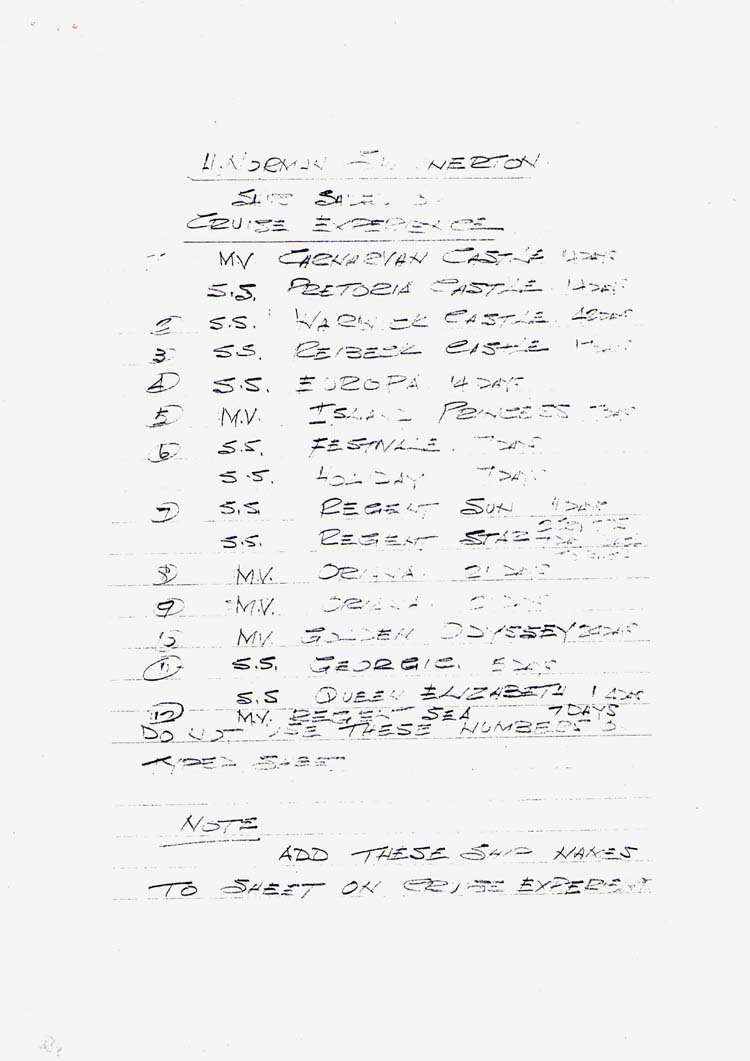 H. NORMAN
CRUISE EXPERIENCE
M.V. CARNARVAN CASTLE DAYS
S.S. PRETORIA CASTLE 14 DAYS
2 S.S. WARWICK CASTLE DAYS
3 S.S. REIBECK CASTLE
4 S.S. EUROPA 14 DAYS
5 M.V. ISLAND PRINCESS DAYS
6 S.S. FESTIVALE 7 DAYS
S.S. HOLIDAY 7 DAYS
7 S.S. REGENT SUN DAYS
S.S. REGENT STAR
8 M.V. ORIANA 21 DAYS
9 M.V. ORIANA DAYS
10 M.V. GOLDEN ODYSSEY DAYS
11 S.S. GEORGIC. 5 DAYS
S.S QUEEN ELIZABETH 1 DAY
12 M.V. REGENT SEA 7 DAYS
DO NOT USE THESE NUMBERS
TYPED SHEET
NOTE
ADD THESE SHIP NAMES
TO SHEET ON CRUISE